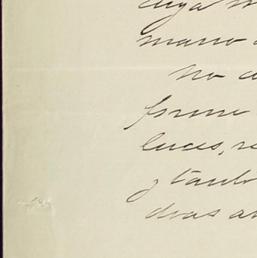 cuya
mano
No
forme
luces, re
y tanto
dras a